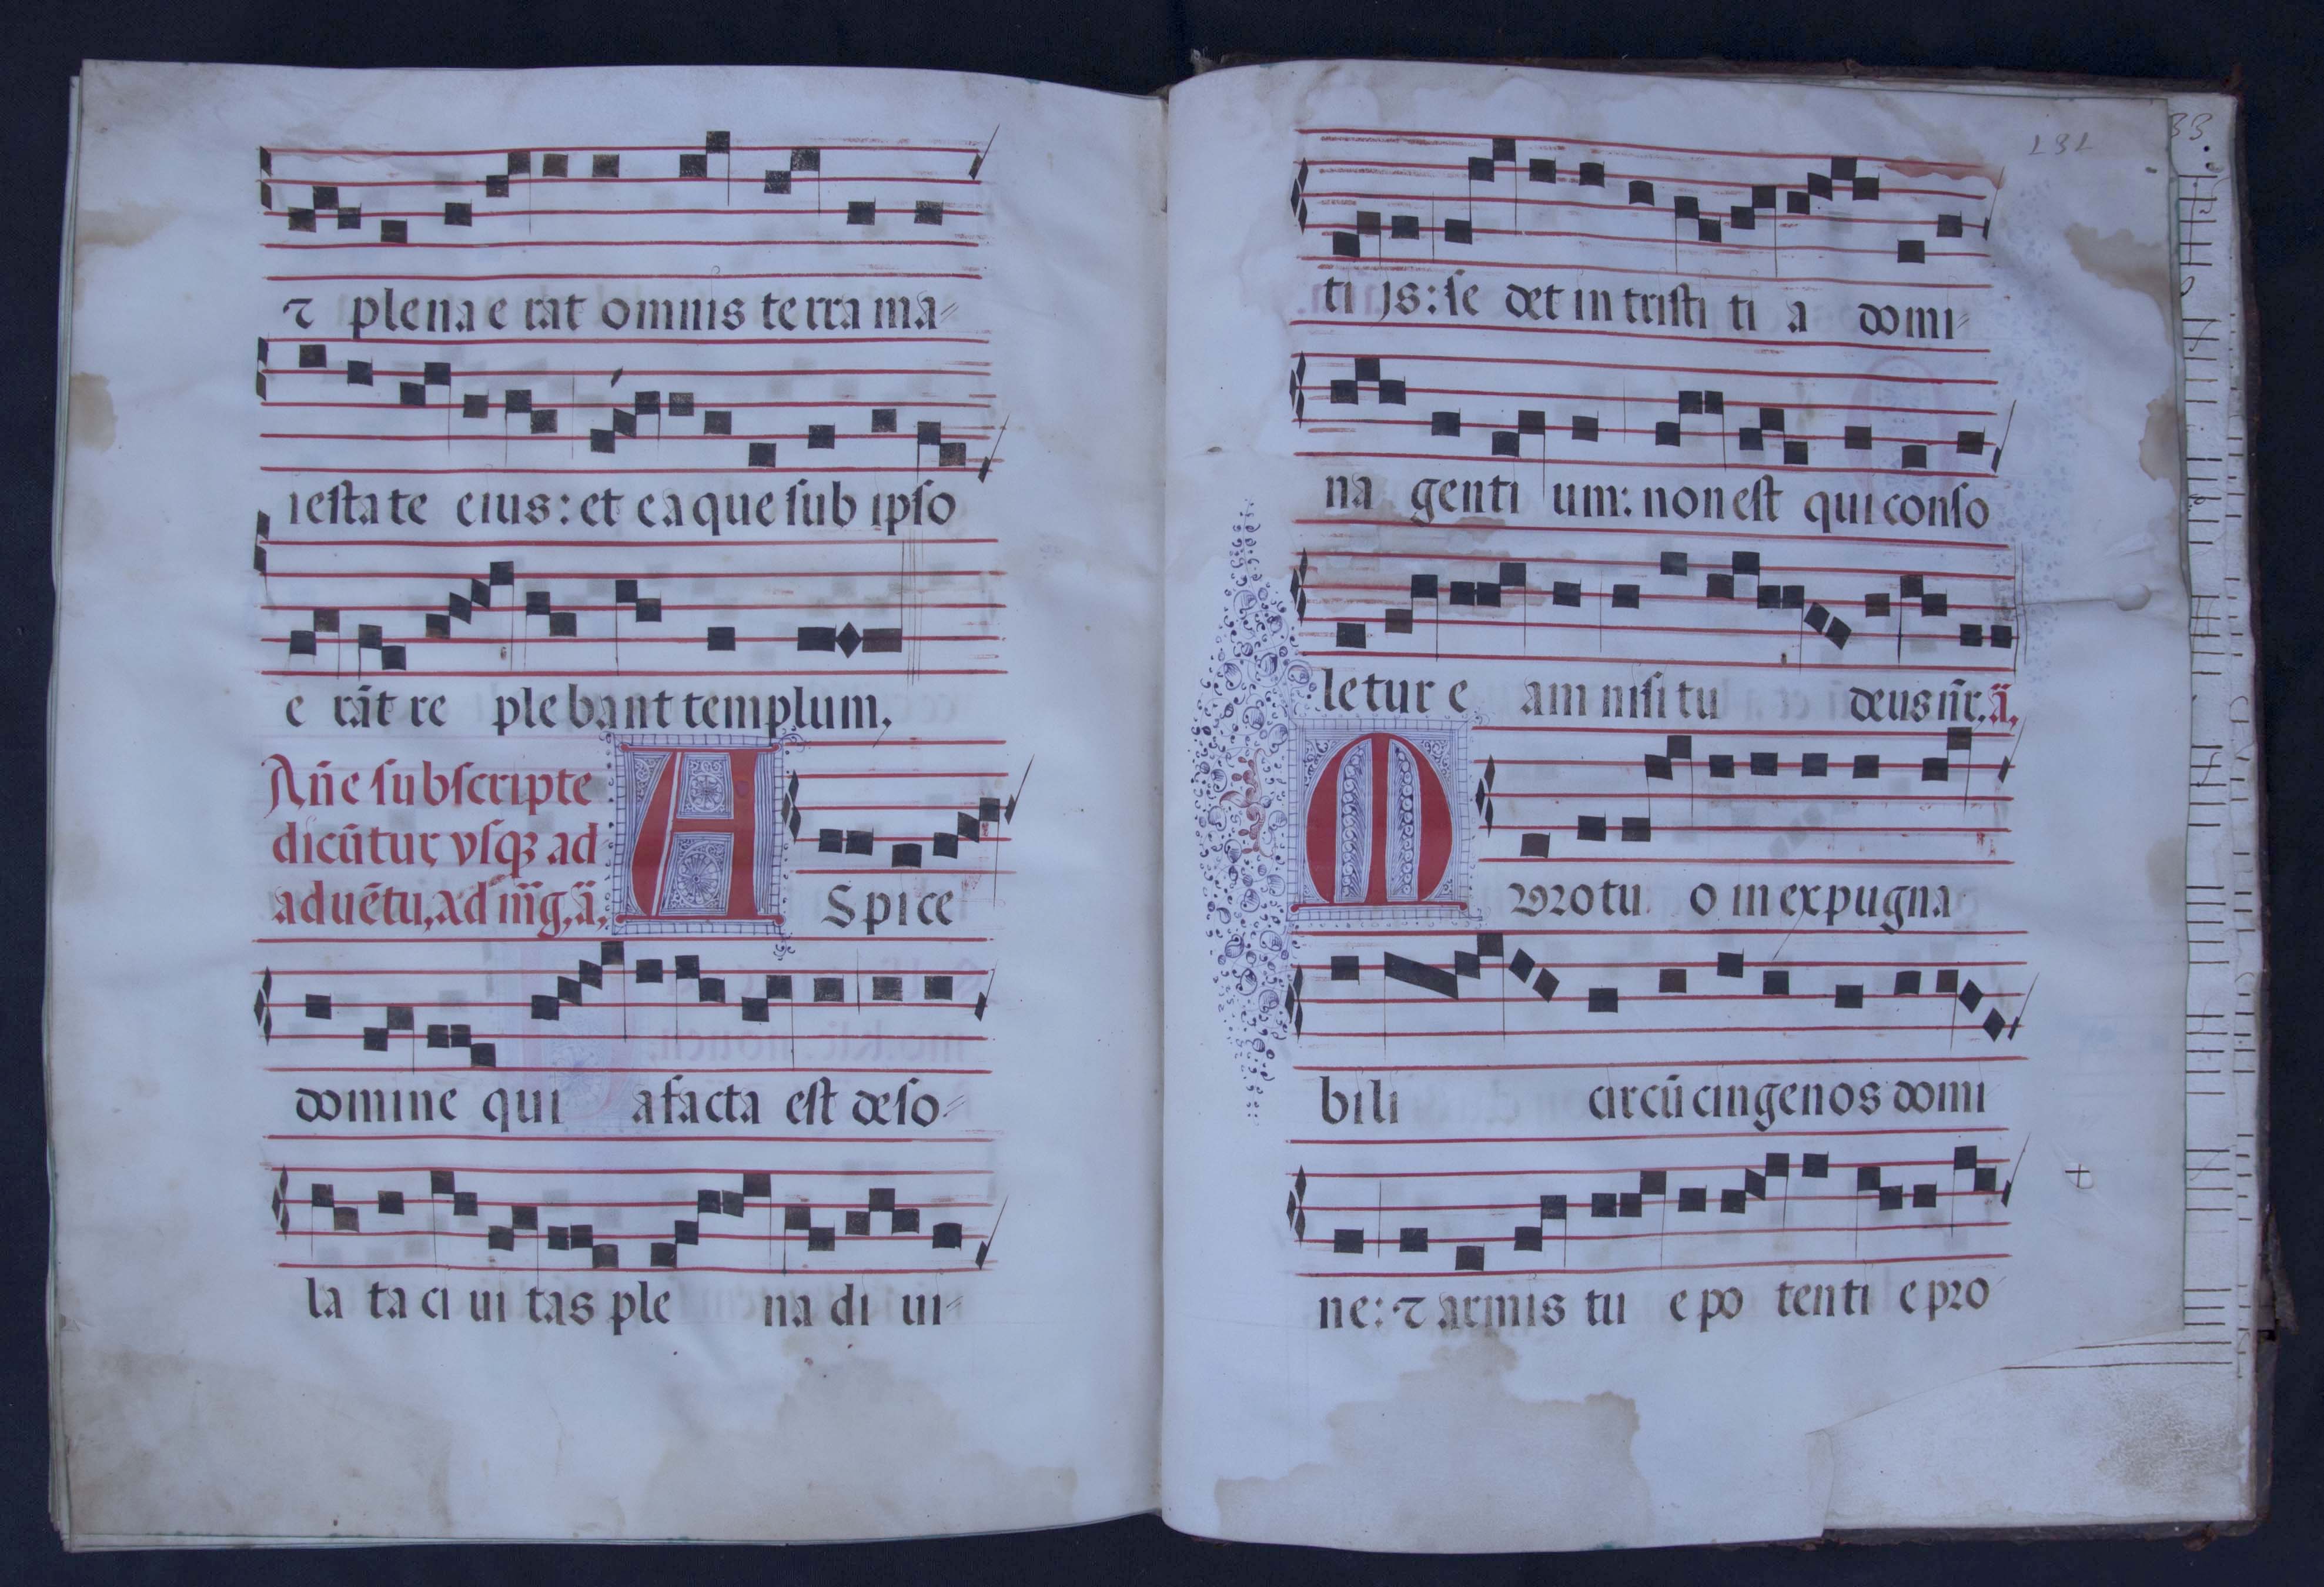 ⁊ plena e rat omnis terra ma⸗
iestate eius: et ea que sub ipso
e rāt re plebant templum.
Añe subscripte
dicūtur, vsqꝫ ad
aduētu, ad m̄g, ā,
A Spice
domine qui a facta est deso⸗
la ta ci ui tas ple na di ui⸗
131
ti js: se det in tristi ti a domi⸗
na genti um: non est qui conso
letur e am nisi tu deus nr̄, ā,
M Vro tu o inexpugna
bili circū cinge nos domi
ne: ⁊ armis tu e po tenti e pro